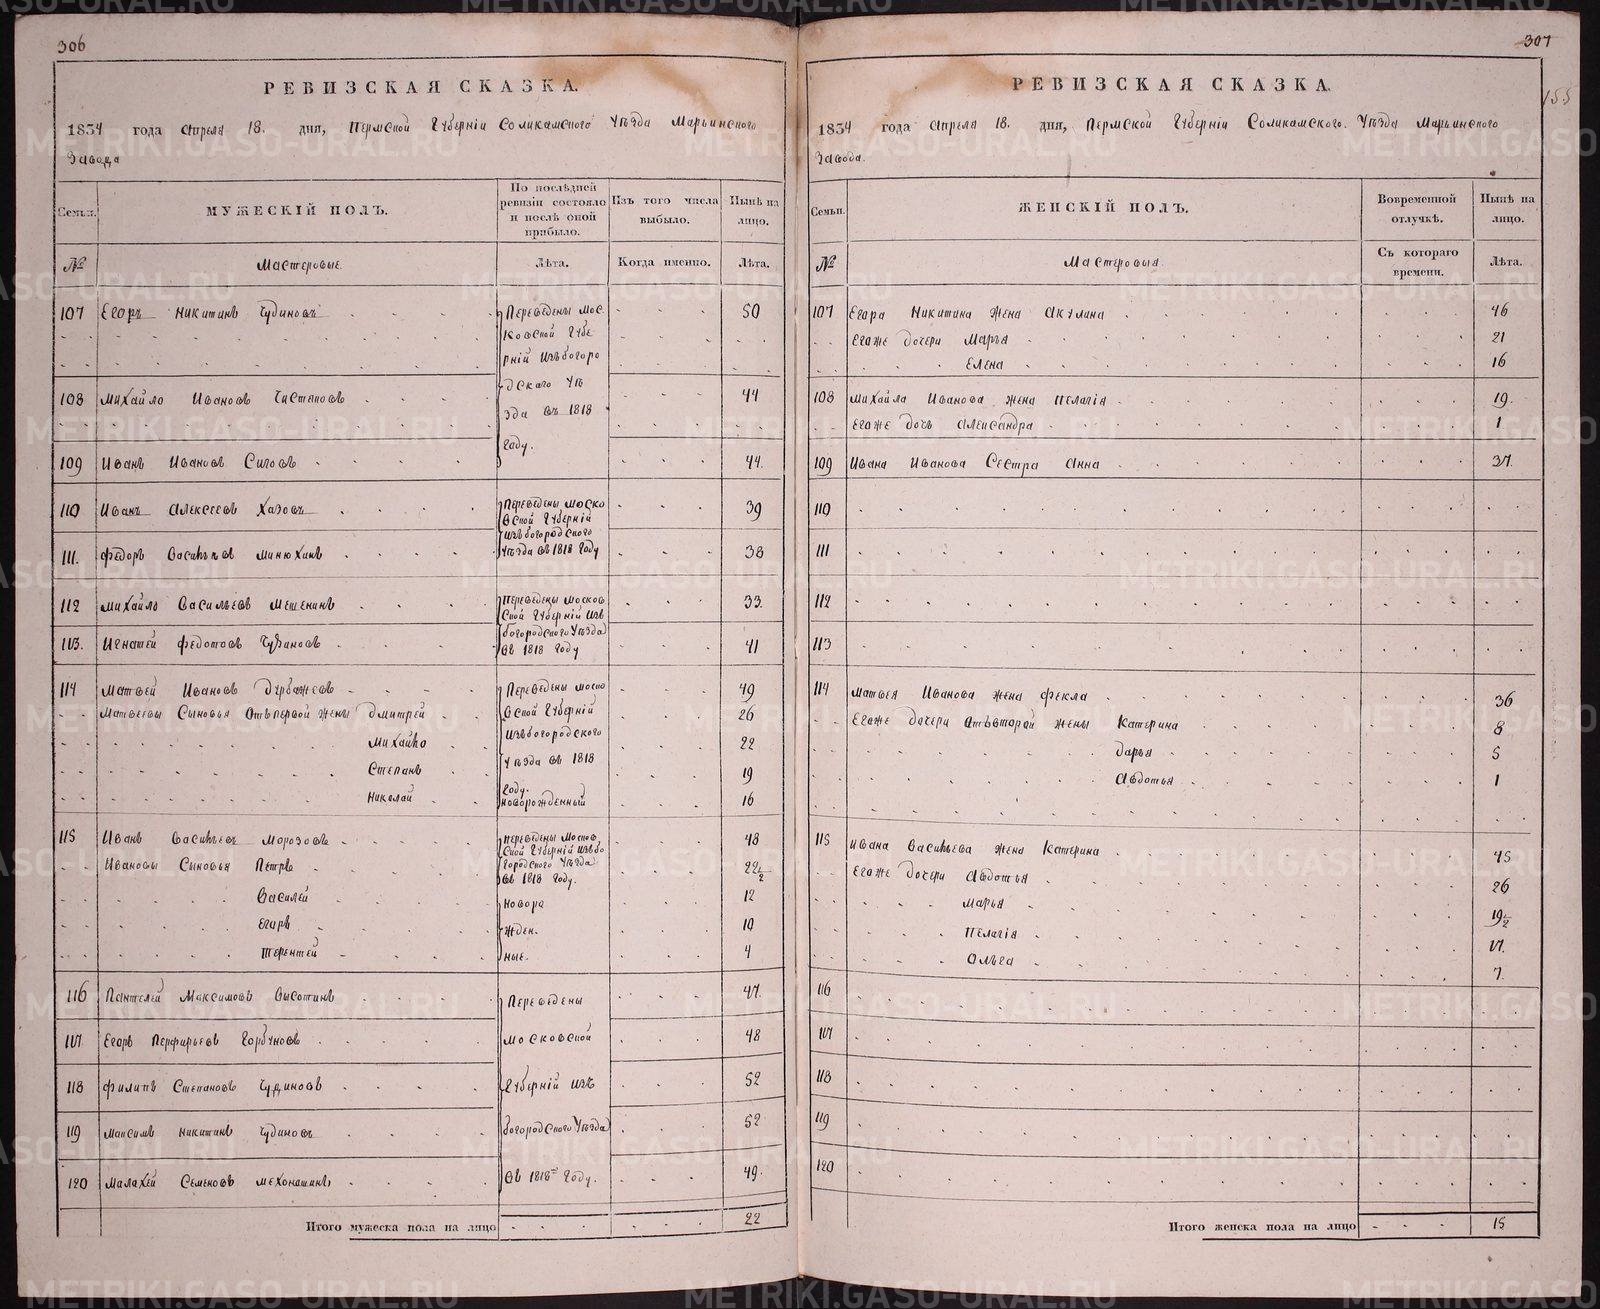 306
РЕВИЗСКАЯ СКАЗКА.
1834 года Апреля 18. дня, Пермской Губернiи Соликамского Уѣзда Марьинского
Завода
Семьи.
МУЖЕСКIЙ ПОЛЪ.
По послѣдней ревизiи состояло и послѣ оной прибыло.
Изъ того числа выбыло.
Нынѣ на лицо.
№
Мастеровые.
Лѣта.
Когда именно.
Лѣта.
107 Егоръ Никитинъ Чудиновъ 50
Переведены Мос
ковской Губе
рнiй Изъ богоро
дскаго Уѣ
зда въ 1818
году.
108 Михайло Ивановъ Чистяковъ 44
109 Иванъ Ивановъ Сизовъ 44.
110 Иванъ Алексеевъ Хазовъ 39
Переведены Моско
вской Губернiй
Изъ богородского
Уѣзда въ 1818 году
111. Федоръ Васильевъ Минюхинъ 38
112 Михайло Васильевъ Мешенинъ 33.
Переведены Москов
ской Губернiй Изъ
богородского Уѣзда
въ 1818 году
113. Игнатей Федотовъ Чудиновъ 41
114 Матвей Ивановъ Дурбажевъ 49
Матвеевы Сыновья Отъ первой жены Дмитрей 26
Михайло 22
Степанъ 19
Николай 16
Переведены моско
вской Губернiй
Изъ богородского
Уѣзда въ 1818
году.
новорожденный
115 Иванъ Васильевъ Морозовъ 48
Ивановы Сыновья Петръ 22½
Василей 12
Егаръ 10
Терентей 4
Переведены Москов
ской Губернiй Изъ бо
городского Уѣзда
въ 1818 году.
новоро
жден.
ные.
116 Пантелей Максимовъ Высотинъ 47.
117. Егоръ Перфирьевъ Горбуновъ 48
118 Филипъ Степановъ Чудиновъ 52
119 Максимъ Никитинъ Чудиновъ 52
120 Малахей Семеновъ Мехоношинъ 49.
Переведены
Московской
Губернiй Изъ
богородского Уѣзда
въ 1818 году.
Итого мужеска пола на лицо 22
307
155
РЕВИЗСКАЯ СКАЗКА.
1834 года Апреля 18. дня, Пермской Губернiи Соликамского. Уѣзда Марьинского
Завода.
Семьи.
ЖЕНСКIЙ ПОЛЪ.
Вовременной отлучкѣ.
Нынѣ на лицо.
№
Мастеровыя.
Съ котораго времени.
Лѣта.
107 Егора Никитина жена Акулина 46
Егоже дочери Марья 21
Елена 16
108 Михайла Иванова жена Пелагiя 19.
Егоже дочь Александра 1
109 Ивана Иванова Сестра Анна 37.
110
111
112
113
114 Матвея Иванова жена Фекла 36
Егоже дочери Отъ второй жены Катерина 8
Дарья 5
Авдотья 1
115 Ивана Васильева жена Катерина 45
Егоже дочери Авдотья 26
Марья 19½
Пелагiя 17.
Ольга 7.
116
117
118
119
120
Итого женска пола на лицо 15
METRIKI.GASO-URAL.RU